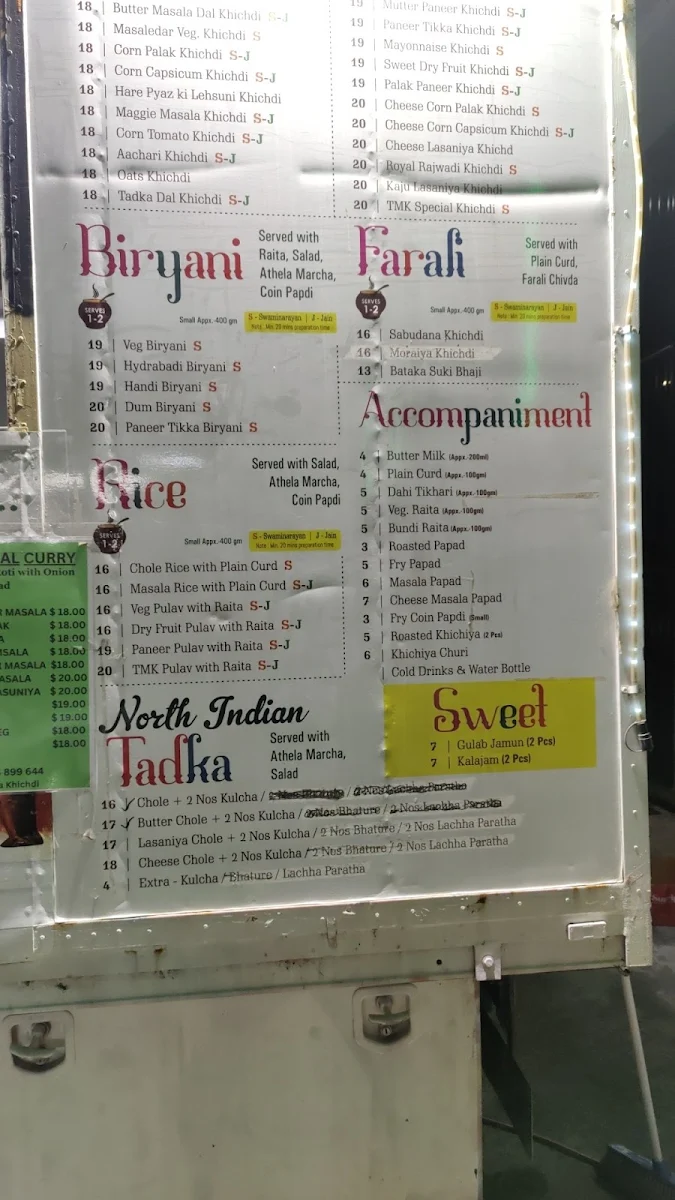 18 | Butter Masala Dal Khichdi S-J
18 | Masaledar Veg. Khichdi S
18 | Corn Palak Khichdi S-J
18 | Corn Capsicum Khichdi S-J
18 | Hare Pyaz ki Lehsuni Khichdi
18 | Maggie Masala Khichdi S-J
18 | Corn Tomato Khichdi S-J
18 | Aachari Khichdi S-J
18 | Oats Khichdi
18 | Tadka Dal Khichdi S-J
19 | Mutter Paneer Khichdi S-J
19 | Paneer Tikka Khichdi S-J
19 | Mayonnaise Khichdi S
19 | Sweet Dry Fruit Khichdi S-J
19 | Palak Paneer Khichdi S-J
20 | Cheese Corn Palak Khichdi S
20 | Cheese Corn Capsicum Khichdi S-J
20 | Cheese Lasaniya Khichd
20 | Royal Rajwadi Khichdi S
20 | Kaju Lasaniya Khichdi
20 | TMK Special Khichdi S
Biryani
Served with
Raita, Salad,
Athela Marcha,
Coin Papdi
SERVES
1-2
Small Appx. 400 gm
S - Swaminarayan | J - Jain
Note : Min. 20 mins preparation time
19 | Veg Biryani S
19 | Hydrabadi Biryani S
19 | Handi Biryani S
20 | Dum Biryani S
20 | Paneer Tikka Biryani S
Farali
Served with
Plain Curd,
Farali Chivda
SERVES
1-2
Small Appx. 400 gm
S - Swaminarayan | J - Jain
Note : Min. 20 mins preparation time
16 | Sabudana Khichdi
16 | Moraiya Khichdi
13 | Bataka Suki Bhaji
Rice
Served with Salad,
Athela Marcha,
Coin Papdi
SERVES
1-2
Small Appx. 400 gm
S - Swaminarayan | J - Jain
Note : Min. 20 mins preparation time
16 | Chole Rice with Plain Curd S
16 | Masala Rice with Plain Curd S-J
16 | Veg Pulav with Raita S-J
16 | Dry Fruit Pulav with Raita S-J
19 | Paneer Pulav with Raita S-J
20 | TMK Pulav with Raita S-J
Accompaniment
4 | Butter Milk (Appx.-200ml)
4 | Plain Curd (Appx.-100gm)
5 | Dahi Tikhari (Appx.-100gm)
5 | Veg. Raita (Appx.-100gm)
5 | Bundi Raita (Appx.-100gm)
3 | Roasted Papad
5 | Fry Papad
6 | Masala Papad
7 | Cheese Masala Papad
3 | Fry Coin Papdi (Small)
5 | Roasted Khichiya (2 Pcs)
6 | Khichiya Churi
| Cold Drinks & Water Bottle
Sweet
7 | Gulab Jamun (2 Pcs)
7 | Kalajam (2 Pcs)
North Indian
Tadka
Served with
Athela Marcha,
Salad
16 | Chole + 2 Nos Kulcha / 2 Nos Bhature / 2 Nos Lachha Paratha
17 | Butter Chole + 2 Nos Kulcha / 2 Nos Bhature / 2 Nos Lachha Paratha
17 | Lasaniya Chole + 2 Nos Kulcha / 2 Nos Bhature / 2 Nos Lachha Paratha
18 | Cheese Chole + 2 Nos Kulcha / 2 Nos Bhature / 2 Nos Lachha Paratha
4 | Extra - Kulcha / Bhature / Lachha Paratha
AL CURRY
oti with Onion
ad
MASALA $18.00
AK $18.00
A $18.00
SALA $18.00
MASALA $18.00
ASALA $20.00
ASUNIYA $20.00
$19.00
$19.00
EG $18.00
$18.00
899 644
a Khichdi